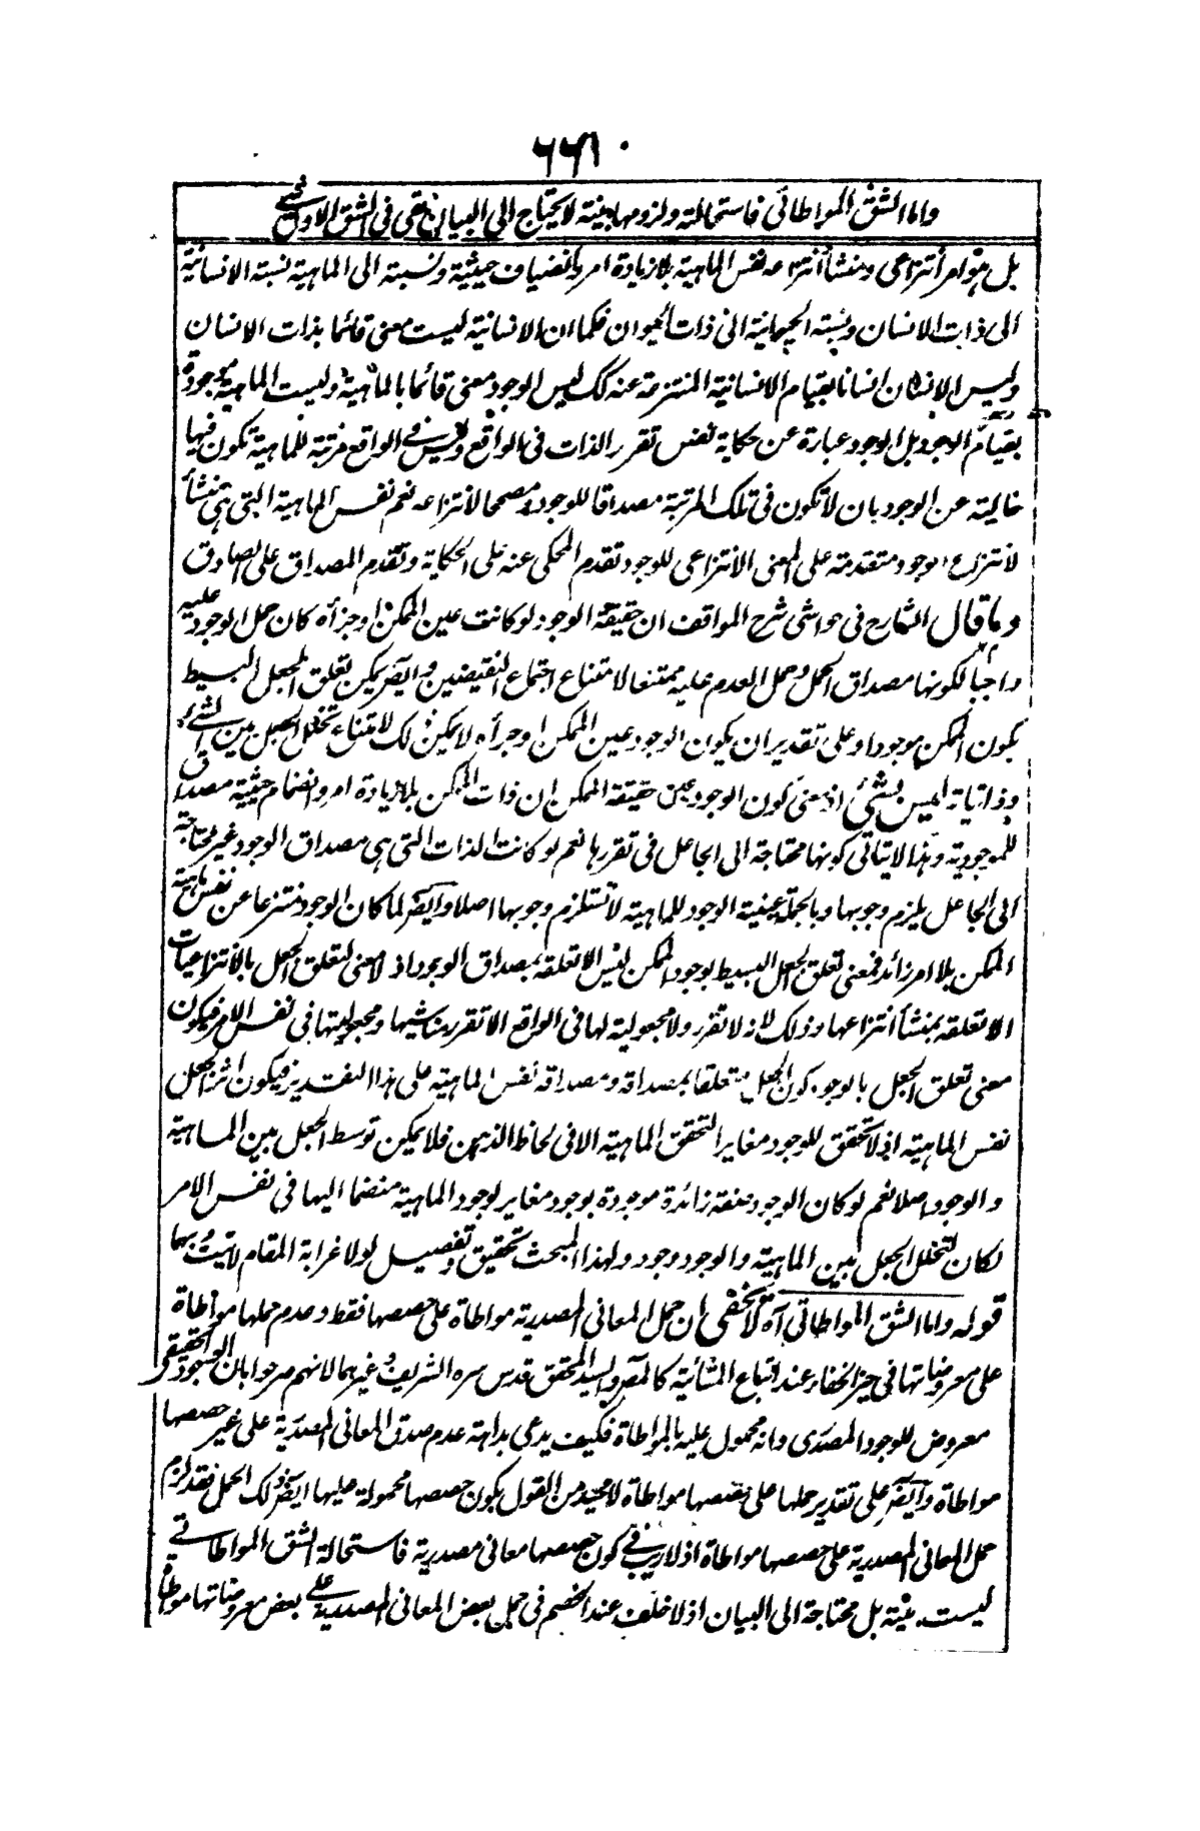 واما الشق المواطاتى فاستحالته ولزومها بينة لا يحتاج الى البيان بقى فى الشق الاول شئ
بل هو امر انتزاعى ومنشأ انتزاعه نفس الماهية بلا زيادة امر وانضياف حيثية ونسبته الى الماهية نسبة الانسانية
الى ذات الانسان ونسبة الحيوانية الى ذات الحيوان فكما ان الانسانية ليست معنى قائما بذات الانسان
وليس الانسان انسانا بقيام الانسانية المنتزعة عنه كك ليس الوجود معنى قائما بالماهية وليست الماهية موجودة
بقيام الوجود بل الوجود عبارة عن حكاية نفس تقرر الذات فى الواقع وليس فى الواقع مرتبة للماهية تكون فيها
خالية عن الوجود بان لا تكون فى تلك المرتبة مصداقا للوجود ومصححا لانتزاعه نعم نفس الماهية التى هى منشأ
لانتزاع الوجود متقدمة على المعنى الانتزاعى للوجود تقدم المحكى عنه على الحكاية وتقدم المصداق على الصادق
وما قال الشارح فى حواشى شرح المواقف ان حقيقة الوجود لو كانت عين الممكن او جزأه كان حمل الوجود عليه
واجبا لكونها مصداق الحمل وحمل العدم عليه ممتنعا لامتناع اجتماع النقيضين وايضا يمكن تعلق الجعل البسيط
بكون الممكن موجودا وعلى تقدير ان يكون الوجود عين الممكن او جزأه لا يمكن ذلك لامتناع تخلل الجعل بين الشئ
وذاتياته ليس بشئ اذ معنى كون الوجود عين حقيقة الممكن ان ذات الممكن بلا زيادة امر وانضمام حيثية مصداق
للموجودية وهذا لا ينافى كونها محتاجة الى الجاعل فى تقررها نعم لو كانت الذات التى هى مصداق الوجود غير محتاجة
الى الجاعل يلزم وجوبها وبالجملة عينية الوجود للماهية لا تستلزم وجوبها اصلا وايضا لما كان الوجود منتزعا عن نفس ماهية
الممكن بلا امر زائد فمعنى تعلق الجعل البسيط بوجود الممكن ليس الا تعلقه بمصداق الوجود اذ لا معنى لتعلق الجعل بالانتزاعيات
الا تعلقه بمنشأ انتزاعها وذلك لانه لا تقرر ولا مجعولية لها فى الواقع الا تقرر مناشيها ومجعوليتها فى نفس الامر فيكون
معنى تعلق الجعل بالوجود كون الجعل متعلقا بمصداقه ومصداقه نفس الماهية على هذا التقدير فيكون اثر الجعل
نفس الماهية اذ لا تحقق للوجود مغاير التحقق الماهية الا فى لحاظ الذهن فلا يمكن توسط الجعل بين الماهية
والوجود اصلا نعم لو كان الوجود صفة زائدة موجودة بوجود مغاير لوجود الماهية منضما اليها فى نفس الامر
لكان لتخلل الجعل بين الماهية والوجود وجود ولهذا المبحث تحقيق وتفصيل لولا غرابة المقام لاتيت بها
قوله واما الشق المواطاتى آه لا يخفى ان حمل المعانى المصدرية مواطاة على حصصها فقط وعدم حملها مواطاة
على معروضاتها فى حيز الخفاء عند اتباع المشائية كالمصر والسيد المحقق قدس سره الشريف وغيرهما لانهم صرحوا بان الوجود الحقيقى
معروض للوجود المصدرى وانه محمول عليه بالمواطاة فكيف يدعى بداهة عدم صدق المعانى المصدرية على غير حصصها
مواطاة وايضا على تقدير حملها على حصصها مواطاة لا محيد من القول بكون حصصها محمولة عليها ايضا كذلك الحمل فقد لزم
حمل المعانى المصدرية على حصصها مواطاة اذ لا ريب فى كون حصصها معانى مصدرية فاستحالة الشق المواطاتى
ليست بينة بل محتاجة الى البيان اذ لا خلف عند الخصم فى حمل بعض المعانى المصدرية على بعض معروضاتها مواطاة